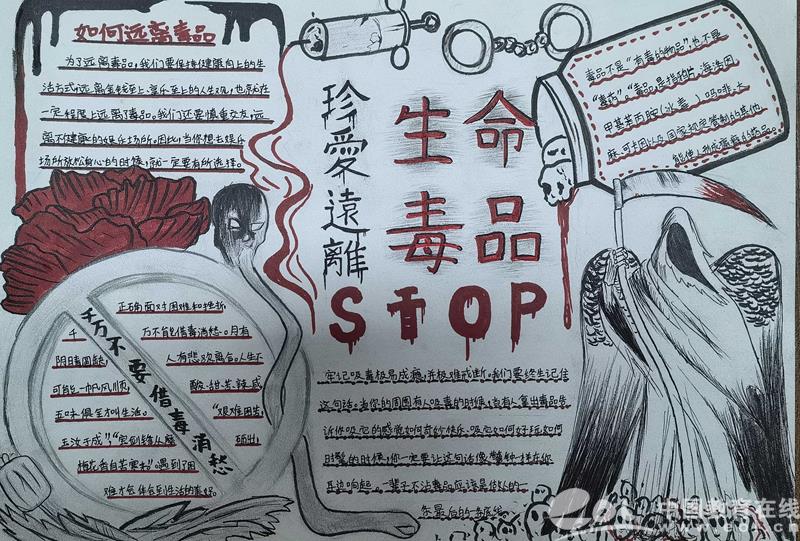 如何远离毒品
为了远离毒品，我们要保持健康向上的生
活方式，远离金钱至上、享乐至上的人生观，也就在
一定程度上远离了毒品。我们还要慎重交友，远
离不健康的娱乐场所。因此，当你想去娱乐
场所放松身心的时候，就一定要有所选择。
珍愛遠離
生命
毒品
STOP
毒品不是"有毒的物品"，也不是
"毒药"，"毒品"是指鸦片、海洛因、
甲基苯丙胺（冰毒）、吗啡、大
麻、可卡因以及国家规定管制的其他
能使人形成瘾癖的药品。
千万不要借毒消愁
正确面对困难和挫折，
千万不能借毒消愁。月有
阴晴圆缺，人有悲欢离合。人生不
可能一帆风顺，酸、甜、苦、辣、咸
五味俱全才叫生活。"艰难困苦，
玉汝于成"，"宝剑锋从磨砺出，
梅花香自苦寒来"。遇到了困
难才会体会到生活的美好。
牢记吸毒极易成瘾，并极难戒断。我们要终生记住
这句话。当你的周围有人吸毒的时候，当有人拿出毒品告
诉你吸它的感觉如何奇妙快乐、吸它如何好玩、如何
时髦的时候，你一定要让这句话像警钟一样在你
耳边响起。一辈子不沾毒品应该是你人的一
条最后的一条底线。
中国教育在线
www.eol.cn